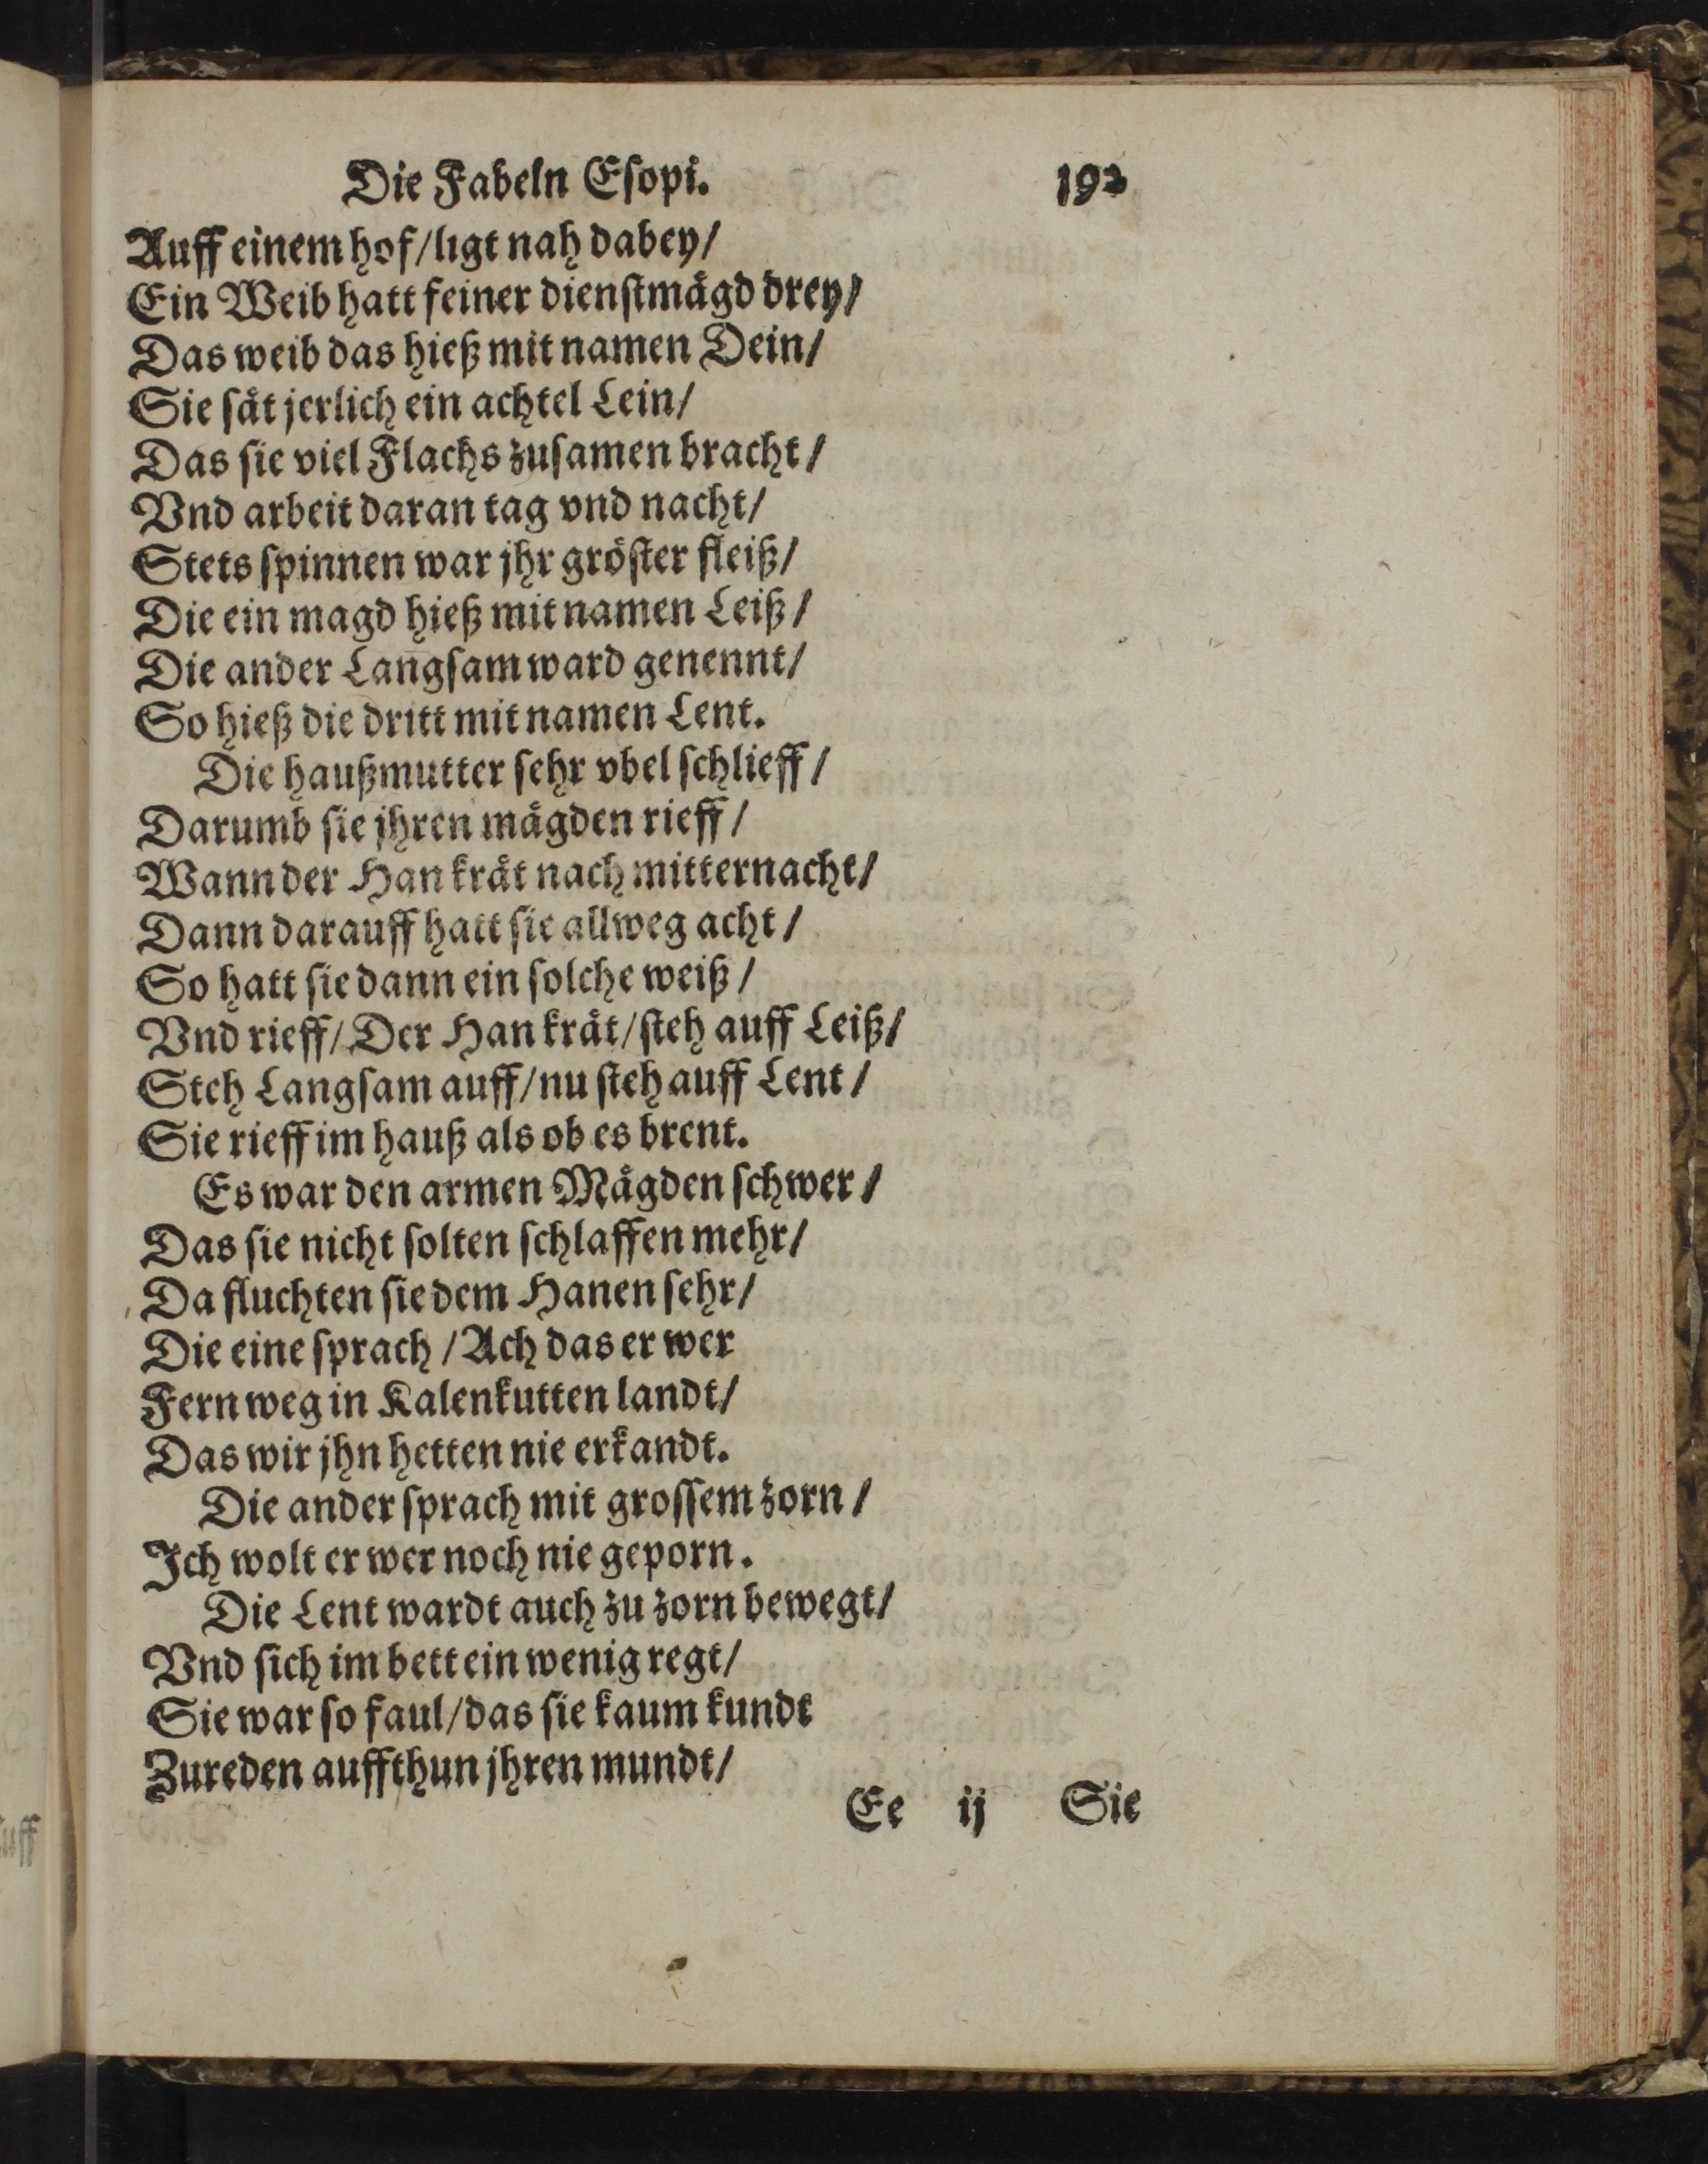 Die Fabeln Eſopi. 192
Auff einem hof/ligt nah dabey/
Ein Weib hatt feiner dienſtmägd drey/
Das weib das hieß mit namen Dein/
Sie ſät jerlich ein achtel Lein/
Das ſie viel Flachs zuſamen bracht/
Vnd arbeit daran tag vnd nacht/
Stets ſpinnen war jhr gröſter fleiß/
Die ein magd hieß mit namen Leiß/
Die ander Langſam ward genennt/
So hieß die dritt mit namen Lent.
Die haußmutter ſehr vbel ſchlieff/
Darumb ſie jhren mägden rieff/
Wann der Han krät nach mitternacht/
Dann darauff hatt ſie allweg acht/
So hatt ſie dann ein ſolche weiß/
Vnd rieff/Der Han krät/ſteh auff Leiß/
Steh Langſam auff/nu ſteh auff Lent/
Sie rieff im hauß als ob es brent.
Es war den armen Mägden ſchwer/
Das ſie nicht ſolten ſchlaffen mehr/
Da fluchten ſie dem Hanen ſehr/
Die eine ſprach/Ach das er wer
Fern weg in Kalenkutten landt/
Das wir jhn hetten nie erkandt.
Die ander ſprach mit groſſem zorn/
Ich wolt er wer noch nie geporn.
Die Lent wardt auch zu zorn bewegt/
Vnd ſich im bett ein wenig regt/
Sie war ſo faul/das ſie kaum kundt
Zureden auffthun jhren mundt/
Ee ij Sie
uff